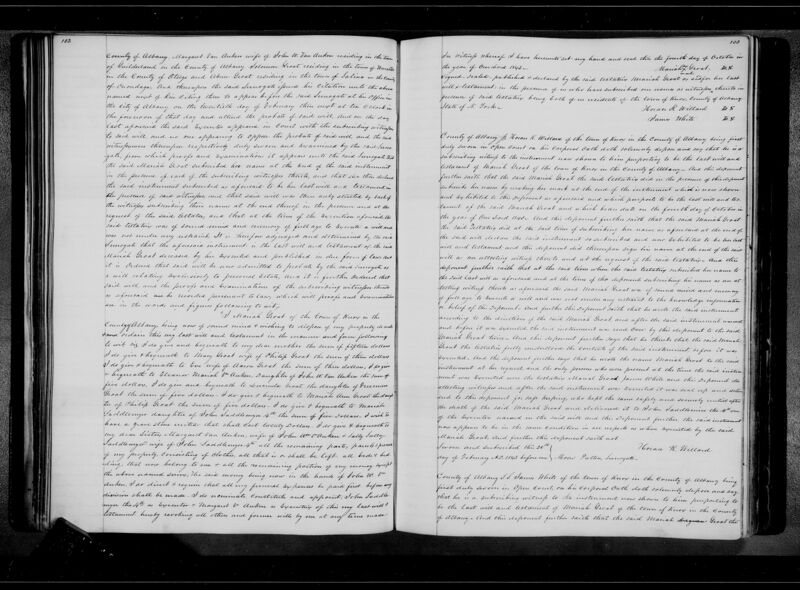 102
County of Albany, Margaret Van Auken wife of John W. Van Auken residing in the town
of Guilderland in the County of Albany, Solomon Groat residing in the town of
in the County of Otsego and Groat residing in the town of Salina in the County
of Onondaga. And thereupon the said Surrogate issued his citation unto the above
named next of Kin citing them to appear before the said Surrogate at his Office in
the City of Albany on the twentieth day of February then next at ten o'clock in
the forenoon of that day and attend the probate of said will. And on the day
last aforesaid the said Executor appears in Court with the subscribing witnesses
to said will and no one appearing to oppose the probate of said will and the said
witnesses thereupon respectively duly sworn and examined by the said Surro-
gate, from which proofs and examinations it appears unto the said Surrogate that
the said Mariah Groat subscribed her name at the end of the said instrument
in the presence of each of the subscribing witnesses thereto, and that she then declared
the said instrument subscribed as aforesaid to be her last will and testament in
the presence of said witnesses and that said will was then duly attested by each of
the witnesses subscribing their names at the end thereof in the presence and at the
request of the said testatrix, and that at the time of the execution aforesaid the
said testatrix was of sound mind and memory of full age to execute a will and
was not under any restraint. It is therefore adjudged and determined by the said
Surrogate that the aforesaid instrument is the last will and testament of the said
Mariah Groat deceased by her executed and published in due form of law, and
it is Ordered that said will be and admitted to probate by the said Surrogate as
a will relating exclusively to personal estate, And it is further Ordered that
said will, and the proofs and examinations of the subscribing witnesses thereto
as aforesaid be recorded pursuant to law, which will proofs and examinations
are in the words and figures following to wit,
I Mariah Groat of the town of Knox in the
County of Albany, being now of sound mind & wishing to dispose of my property do and
some ordain this my last will and testament in the manner and form following
to wit viz, I do give and bequeath to my dear mother the sum of fifteen dollars
I do give & bequeath to Mary Groat wife of Philip Groat the sum of three dollars
I do give & bequeath to Eve wife of Aaron Groat the sum of three dollars, I do give
& bequeath to Van Auken daughter of John W. Van Auken the sum of
five dollars. I do give and bequeath to Groat the daughter of
Groat the sum of five dollars. I do give & bequeath to Mariah Ann Groat daugh-
ter of Philip Groat the sum of five dollars. I do give & bequeath to Mariah
Saddlemyer daughter of John Saddlemyer 4th the sum of five dollars. I wish to
have a grave stone that shall cost twenty dollars. I do give & bequeath to
my dear sisters Margaret Van Auken, wife of John W. Van Auken & Sally
Saddlemyer wife of John Saddlemyer 4th all the remaining parts, parcels & pieces
of my property consisting of clothes all that is or shall be left, all beds & bed-
ding, that now belong to me & all the remaining portion of my money except
the above named sums, the said money being now in the hands of John W. Van
Auken. I do direct & require that all my funeral expenses be paid first before any
division shall be made. I do nominate constitute and appoint John Saddle-
myer the 4th as Executor & Margaret V. Auken as Executrix of this my last will &
testament hereby revoking all others and former wills by me at any time made
103
In witness whereof I have hereunto set my hand and seal this the fourth day of October in
the year of Our Lord 1842.
Mariah Groat. L.S.
Signed sealed published & declared by the said testatrix Mariah Groat as and for her last
will & testament in the presence of us who have subscribed our names as witnesses thereto in
presence of said testatrix being both of us residents of the town of Knox County of Albany
State of N. York.
Hiram K. Willard L.S.
James White L.S.
County of Albany ss Hiram K. Willard of the town of Knox in the County of Albany being first
duly sworn in Open Court on his corporal Oath doth solemnly depose and say that he is a
subscribing witness to the instrument now shown to him purporting to be the last will and
testament of Mariah Groat of the town of Knox in the County of Albany. And this deponent
further saith that the said Mariah Groat the said testatrix did in the presence of this deponent
subscribe his name by making his mark at the end of the instrument which is now shown
and exhibited to this deponent as aforesaid and which purports to be the last will and tes-
tament of the said Mariah Groat and which bears date on the fourth day of October in
the year of Our Lord 1842. And this deponent further saith that the said Mariah Groat
the said testatrix did at the said time of subscribing her name as aforesaid at the end of
the said will declare the said instrument so subscribed and now exhibited to be her last
will and testament and this deponent did thereupon sign his name at the end of the said
will as an attesting witness thereto and at the request of the said testatrix. And this
deponent further saith that at the said time when the said testatrix subscribed her name to
the said last will as aforesaid and at the time of the deponent subscribing his name as an at-
testing witness thereto as aforesaid the said Mariah Groat was of sound mind and memory
of full age to execute a will and was not under any restraint to the knowledge information
or belief of this deponent. And further this deponent saith that he wrote the said instrument
according to the directions of the said Mariah Groat and after the said instrument was
and before it was executed the said instrument was read over by this deponent to the said
Mariah Groat twice. And this deponent further says that he thinks that the said Mariah
Groat the testatrix fully understood the contents of the said instrument before it was
executed. And this deponent further says that he wrote the name Mariah Groat to the said
instrument at her request and the only persons who were present at the time the said instru-
ment was executed were the testatrix Mariah Groat James White and this deponent the
attesting witnesses and after the instrument was executed it was sealed up and given
to this deponent for safe keeping, who kept the same safely and securely until after
the death of the said Mariah Groat and delivered it to John Saddlemire the 4th one
of the executors named in the said will and this deponent further saith that the said
will is now in the same condition in all respects as when executed by the said
Mariah Groat. And further this deponent saith not.
Sworn and subscribed this 20th
day of February A.D. 1843 before me
Moses Patten Surrogate.
Hiram K. Willard
County of Albany ss James White of the town of Knox in the County of Albany being
first duly sworn in Open Court on his corporal Oath doth solemnly depose and say
that he is a subscribing witness to the instrument now shown to him purporting to
be the last will and testament of Mariah Groat of the town of Knox in the County
of Albany. And this deponent further saith that the said Mariah Groat the